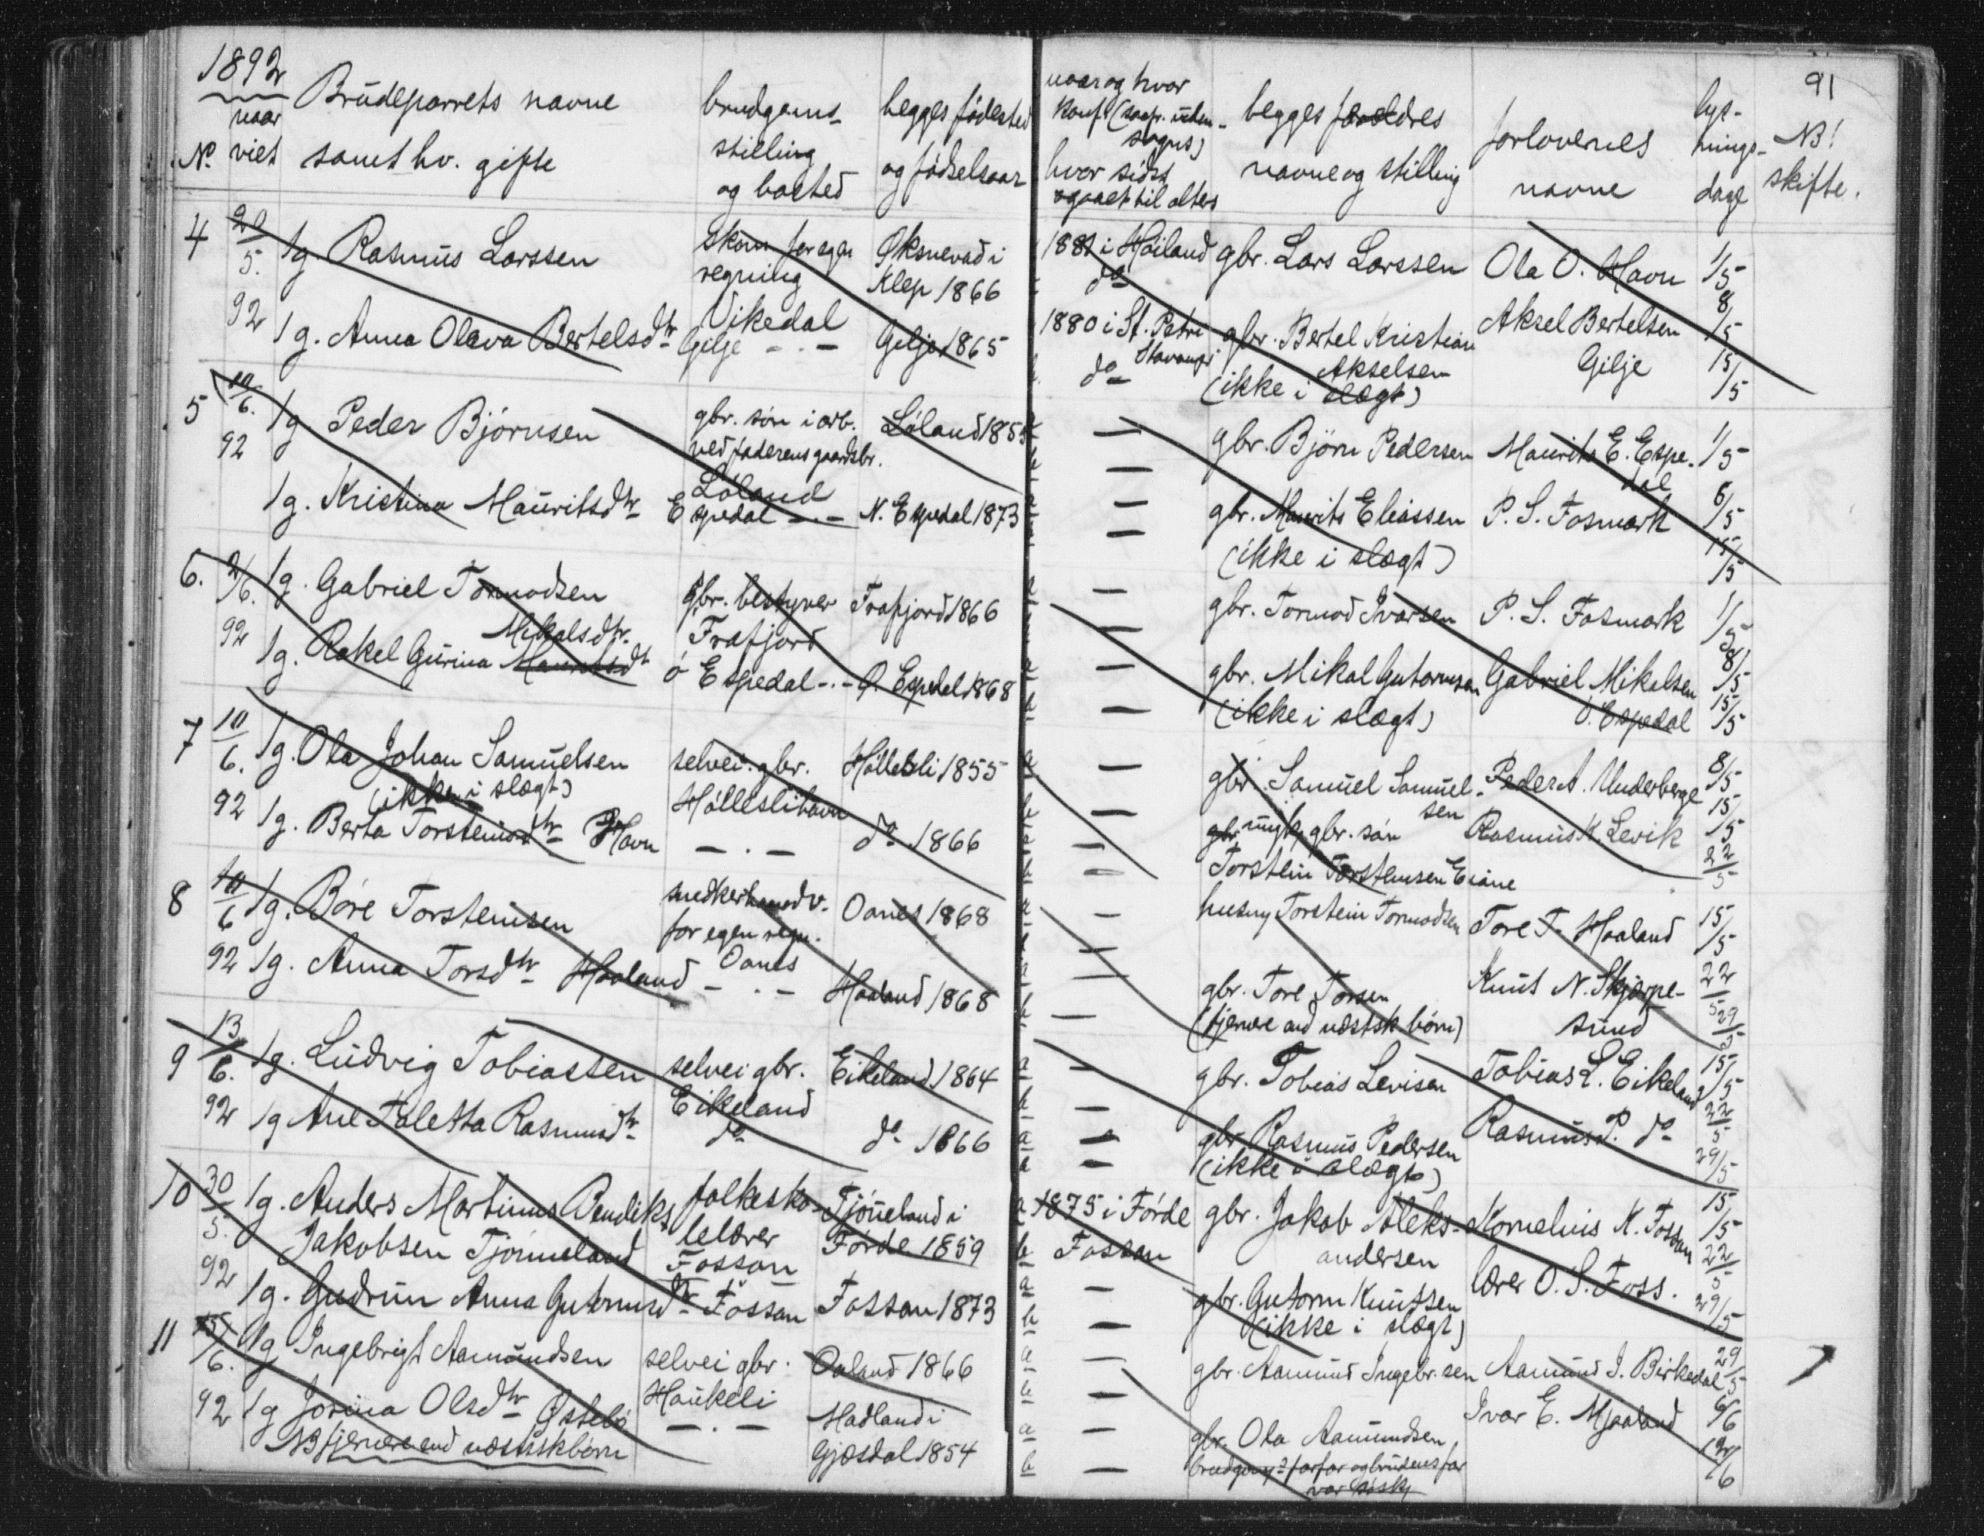 1892
91
No.
naar viet
Brudeparrets navne
samt hv. gifte
brudgoms-
stilling
og bosted
begges fødested
og fødselsaar
naar og hvor
konf. (saafr. uden-
sogns)
hvor sidst
gaaet til alters
begges foreldres
navne og stilling
forlovernes
navne
lys-
nings-
dage
NB!
skifte.
4
20/5. 92
1g Rasmus Larssen
1g. Anna Olava Bertelsdtr
for egen
regning
Vikedal
Gilje - . -
Øksnevad i
Klep 1866
Gilje 1865
1881 i Høiland
do
1880 i St. Petri
Stavanger
do
gbr. Lars Larssen
gbr. Bertel Kristian
Akselsen
(ikke i slægt)
Ola O. Havn
Aksel Bertelsen
Gilje
1/5
8/5
15/5
5
10/6. 92
1g. Peder Bjørnsen
1g. Kristina Mauritsdtr
gbr. søn i arb.
ved faderens gaardsbr.
Løland
Espedal - . -
Løland 1855
N. Espedal 1873
gbr. Bjørn Pedersen
gbr. Maurits Eliassen
(ikke i slægt)
Maurits E. Espe-
dal
P. S. Fosmark
1/5
8/5
15/5
6.
2/6. 92
1g. Gabriel Tormodsen
Mikalsdtr.
1g. Rakel Gurina Mauritsdtr
gbr. bestyrer
Frafjord
ø Espedal - . -
Frafjord 1866
Ø. Espedal 1868
gbr. Tormod Ivarsen
gbr. Mikal Gutormsen
(ikke i slægt)
P. S. Fosmark
Gabriel Mikalsen
Ø. Espedal
1/5
8/5
15/5
7
10/6. 92
1g. Ola Johan Samuelsen
(ikke i slægt)
1g. Berta Torsteinsdtr Havn
selvei. gbr.
Hølleslihavn
- . -
Høllesli 1855
do 1866
gbr. Samuel Samuel-
sen
gbr. søn
Torstein Torsteinsen Eiane
Peder A. Underberge
Rasmus K. Levik
8/5
15/5
22/5
8
10/6 92
1g. Børe Torsteinsen
1g. Anna Torsdtr Haaland
snedkerhandv.
for egen regn.
Oanes
- . -
Oanes 1868
Haaland 1868
husmd Torstein Tormodsen
gbr. Tore Torsen
(fjernere end næstsk.børn)
Tore T. Haaland
Knut N. Skjørpe-
sund
15/5
22/5
29/5
9
13/6. 92
1g. Ludvig Tobiassen
1g Ane Taletta Rasmusdtr
selvei gbr.
Eikeland
do
Eikeland 1864
do 1866
gbr. Tobias Levisen
gbr Rasmus Pedersen
(ikke i slægt)
Tobias L. Eikeland
Rasmus P. do
15/5
22/5
29/5
10
30/5. 92
1g. Anders Martinus Bendiks
Jakobsen Tjønneland
1g. Gudrun Anna Gutormsdtr Fossan
folkesko-
lelærer
Fossan
Tjøneland i
Førde 1859
Fossan 1873
1875 i Førde
Fossan
gbr. Jakob Aleks-
andersen
gbr. Gutorm Knutsen
(ikke i slægt)
Kornelius K. Fossan
lærer O. S. Foss.
15/5
22/5
29/5
11
15/6. 92
1g Ingebrigt Aamundsen
1g Jorina Olsdtr Østebø
NB fjernere end næstskbørn
selvei gbr.
Haukeli
- . -
Oaland 1866
Madland i
Gjæsdal 1854
gbr. Aamund Ingebr.sen
gbr. Ola Aamundsen
brudgoms farfar og brudens far
var søsk
Aamund I. Birkedal
Ivar E. Mjaaland
29/5
6/6
12/6